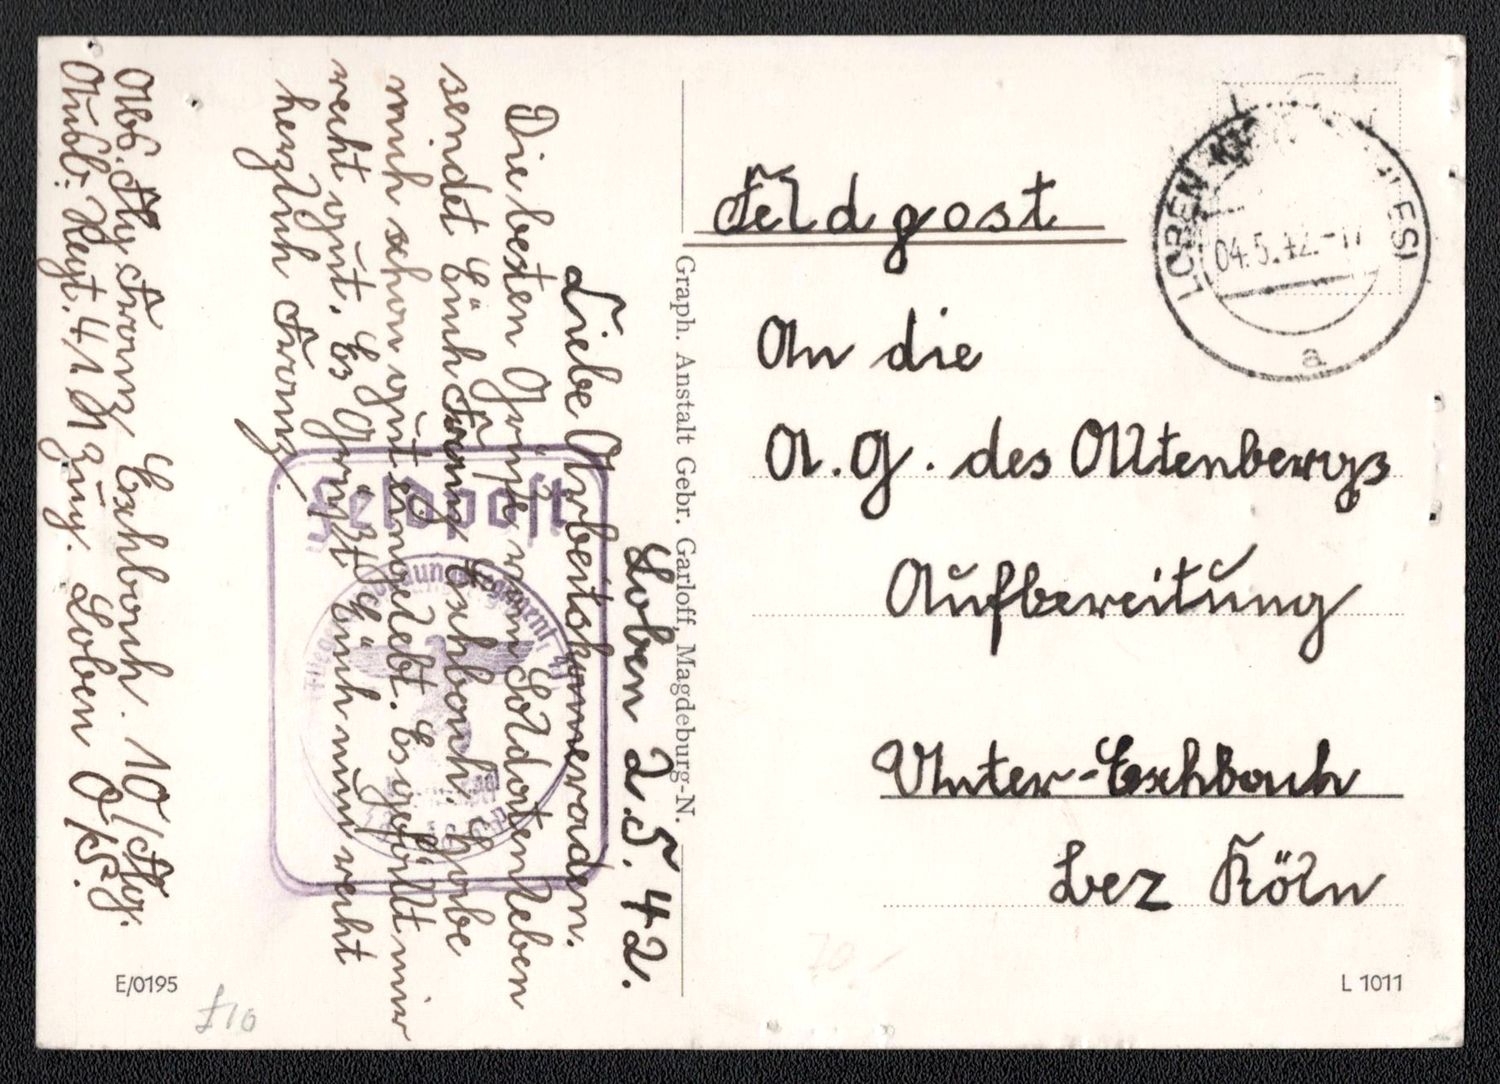 Loben 2.5.42.
Liebe Arbeitskameraden.
Die besten Grüße vom Soldatenleben
sendet Euch Franz Eschbach. Habe
mich schon gut eingelebt. Es gefällt mir
recht gut. Es Grüßt Euch nun recht
herzlich Franz.
Abs. Flg Franz Eschbach. 10/Flg.
Ausb. Regt. 41 Zug. Loben O/S.
Feldpost
Graph. Anstalt Gebr. Garloff, Magdeburg-N.
E/0195
£10
LOBEN
04.5.42.-17
a
Feldpost
An die
A.G. des Altenbergs
Aufbereitung
Unter-Eschbach
Bez Köln
L 1011